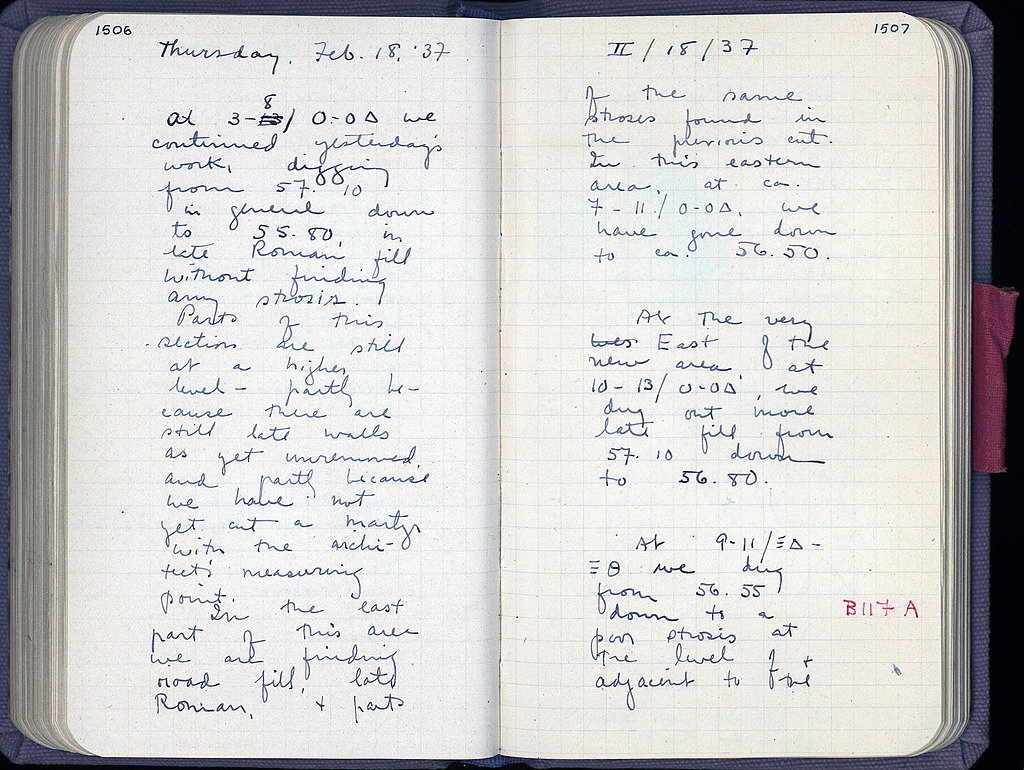 1506
Thursday, Feb. 18, '37
8
At 3-13/ O-OΔ we
continued yesterday's
work, digging
from 57.10
in general down
to 55.80, in
late Roman fill
without finding
any strosis.
Parts of this
section are still
at a higher
level - partly be-
cause there are
still late walls
as yet unremoved,
and partly because
we have not
yet cut a martyr
with the archi-
tect's measuring
point.
In the east
part of this area
we are finding
road fill, late
Roman, + parts
1507
II / 18 / 37
of the same
stroses found in
the previous cut.
In this eastern
area, at ca.
7-11 / O-OΔ, we
have gone down
to ca. 56.50.
At the very
wes East of the
new area, at
10-13/ O-OΔ, we
dug out more
late fill from
57.10 down
to 56.80.
At 9-11/ΞΔ-
ΞΘ we dug
from 56.55
down to a
poor strosis at
the level of +
adjacent to the
B117 A